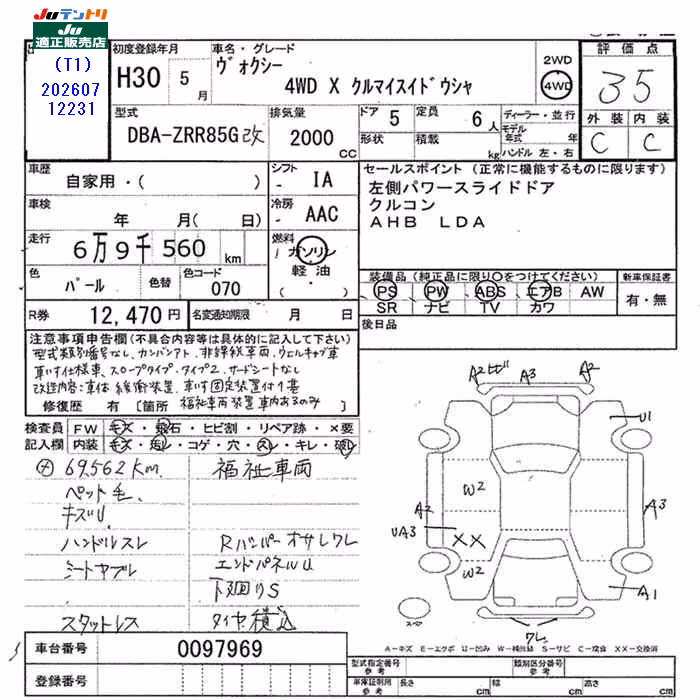 Juテントリ
Ju
適正販売店
(T1)
202607
12231
初度登録年月
H30 5月
車名・グレード
ヴォクシー
4WD X クルマイスイドウシャ
2WD
4WD
評価点
35
外装 内装
C C
型式
DBA-ZRR85G改
排気量
2000 CC
ドア 5
定員 6人
形状
積載 kg
ディーラー・並行
モデル年式 年
ハンドル 左・右
車歴
自家用・( )
シフト
- IA
車検
年 月( 日)
冷房
- AAC
走行
6万9千560 km
燃料
ガソリン
軽油
( ・ )
色
パール
色替
色コード
070
R券 12,470円
名変通知期限 月 日
セールスポイント(正常に機能するものに限ります)
左側パワースライドドア
クルコン
AHB LDA
装備品(純正品に限り○をつけてください)
新車保証書
PS PW ABS エアB AW
SR ナビ TV カワ
有・無
後日品
注意事項申告欄(不具合内容は具体的に記入して下さい)
型式類別番号なし、カンバンアト、非継続車両、ウェルキャブ車
車いす仕様車、スロープタイプ、タイプ2、サードシートなし
改造内容:車体 緩衝装置、車いす固定装置付1基
修復歴 有 [箇所 福祉車両装置車内あるのみ)
検査員 FW キズ・飛石・ヒビ割・リペア跡・×要
記入欄 内装 キズ・汚レ・コゲ・穴・スレ・キレ・破レ
69,562km 福祉車両
ペット毛、
キズU
ハンドルスレ Rバンパーオサレワレ
シートヤブレ エンドパネルU
下廻りS
スタットレス タイヤ積込
A2 A3 A2
U1
W2
A2 A3
UA3
XX
W2
A1
スペア
ワレ
A-キズ E-エクボ U-凹み W-補修跡 S-サビ C-腐食 XX-交換済
車台番号 0097969
登録番号
型式指定番号 参考
類別区分番号 参考
車庫証明用 参考 長さ cm 幅 cm 高さ cm